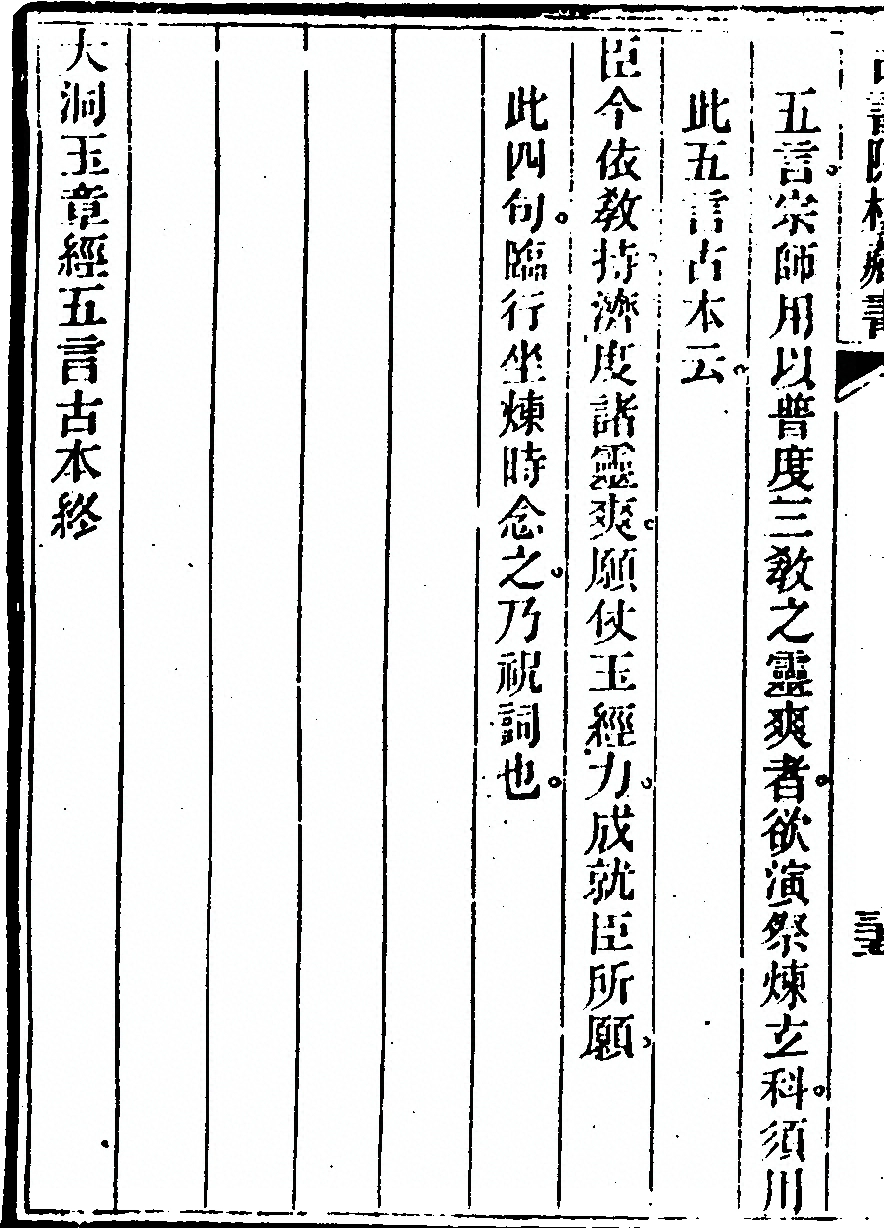 五言。宗師用以普度三教之靈爽者。欲演祭煉玄科。須用
此五言古本云。
臣今依教持。濟度諸靈爽。願仗玉經力。成就臣所願。
此四句。臨行坐煉時念之。乃祝詞也。
大洞玉章經五言古本終